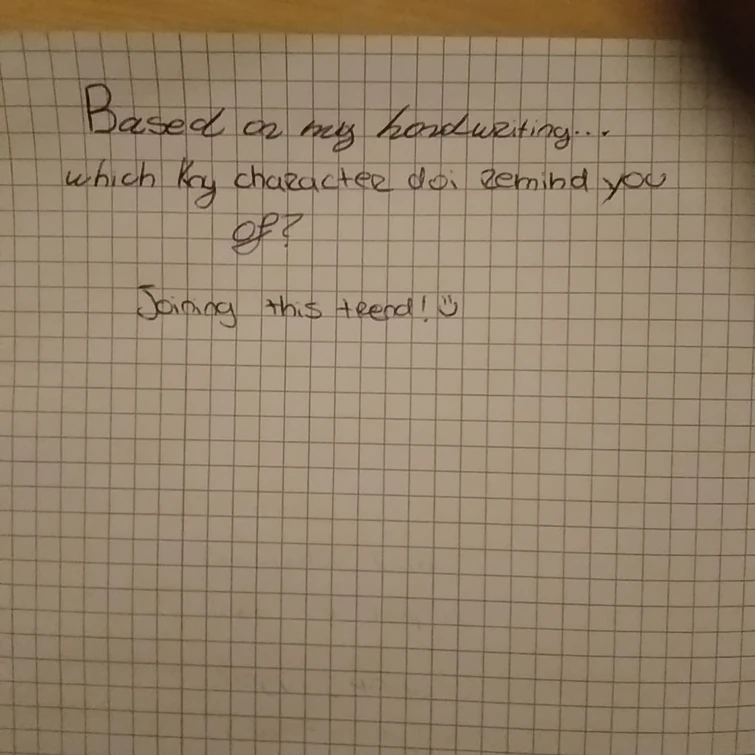 Based on my handwriting...
which Kny character do i remind you
of?
Joining this trend! :)